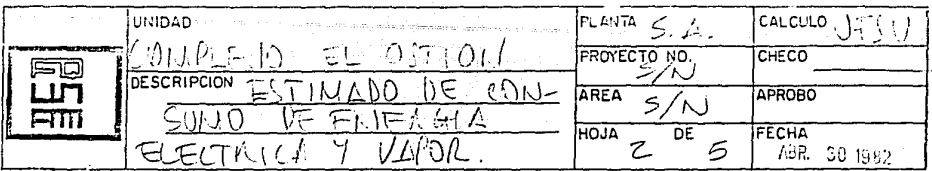 UNIDAD
COMPLEJO EL OSTION
DESCRIPCION ESTIMADO DE CON-
SUMO DE ENERGIA
ELECTRICA Y VAPOR.
PLANTA S.A.
PROYECTO NO. S/N
AREA S/N
HOJA 2 DE 5
CALCULO
CHECO
APROBO
FECHA
ABR. 30 1982
FQ
UNAM